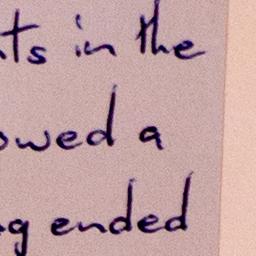 ts in the
owed a
g ended